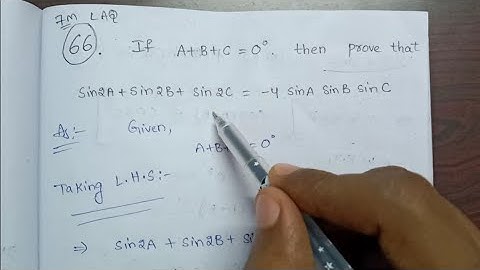 7m LAQ
66. If A+B+C = 0°. then prove that
Sin2A + Sin2B + Sin2C = -4 SinA SinB SinC
As:- Given,
A+B+ = 0°
Taking L.H.S:-
⇒ Sin2A + Sin2B +